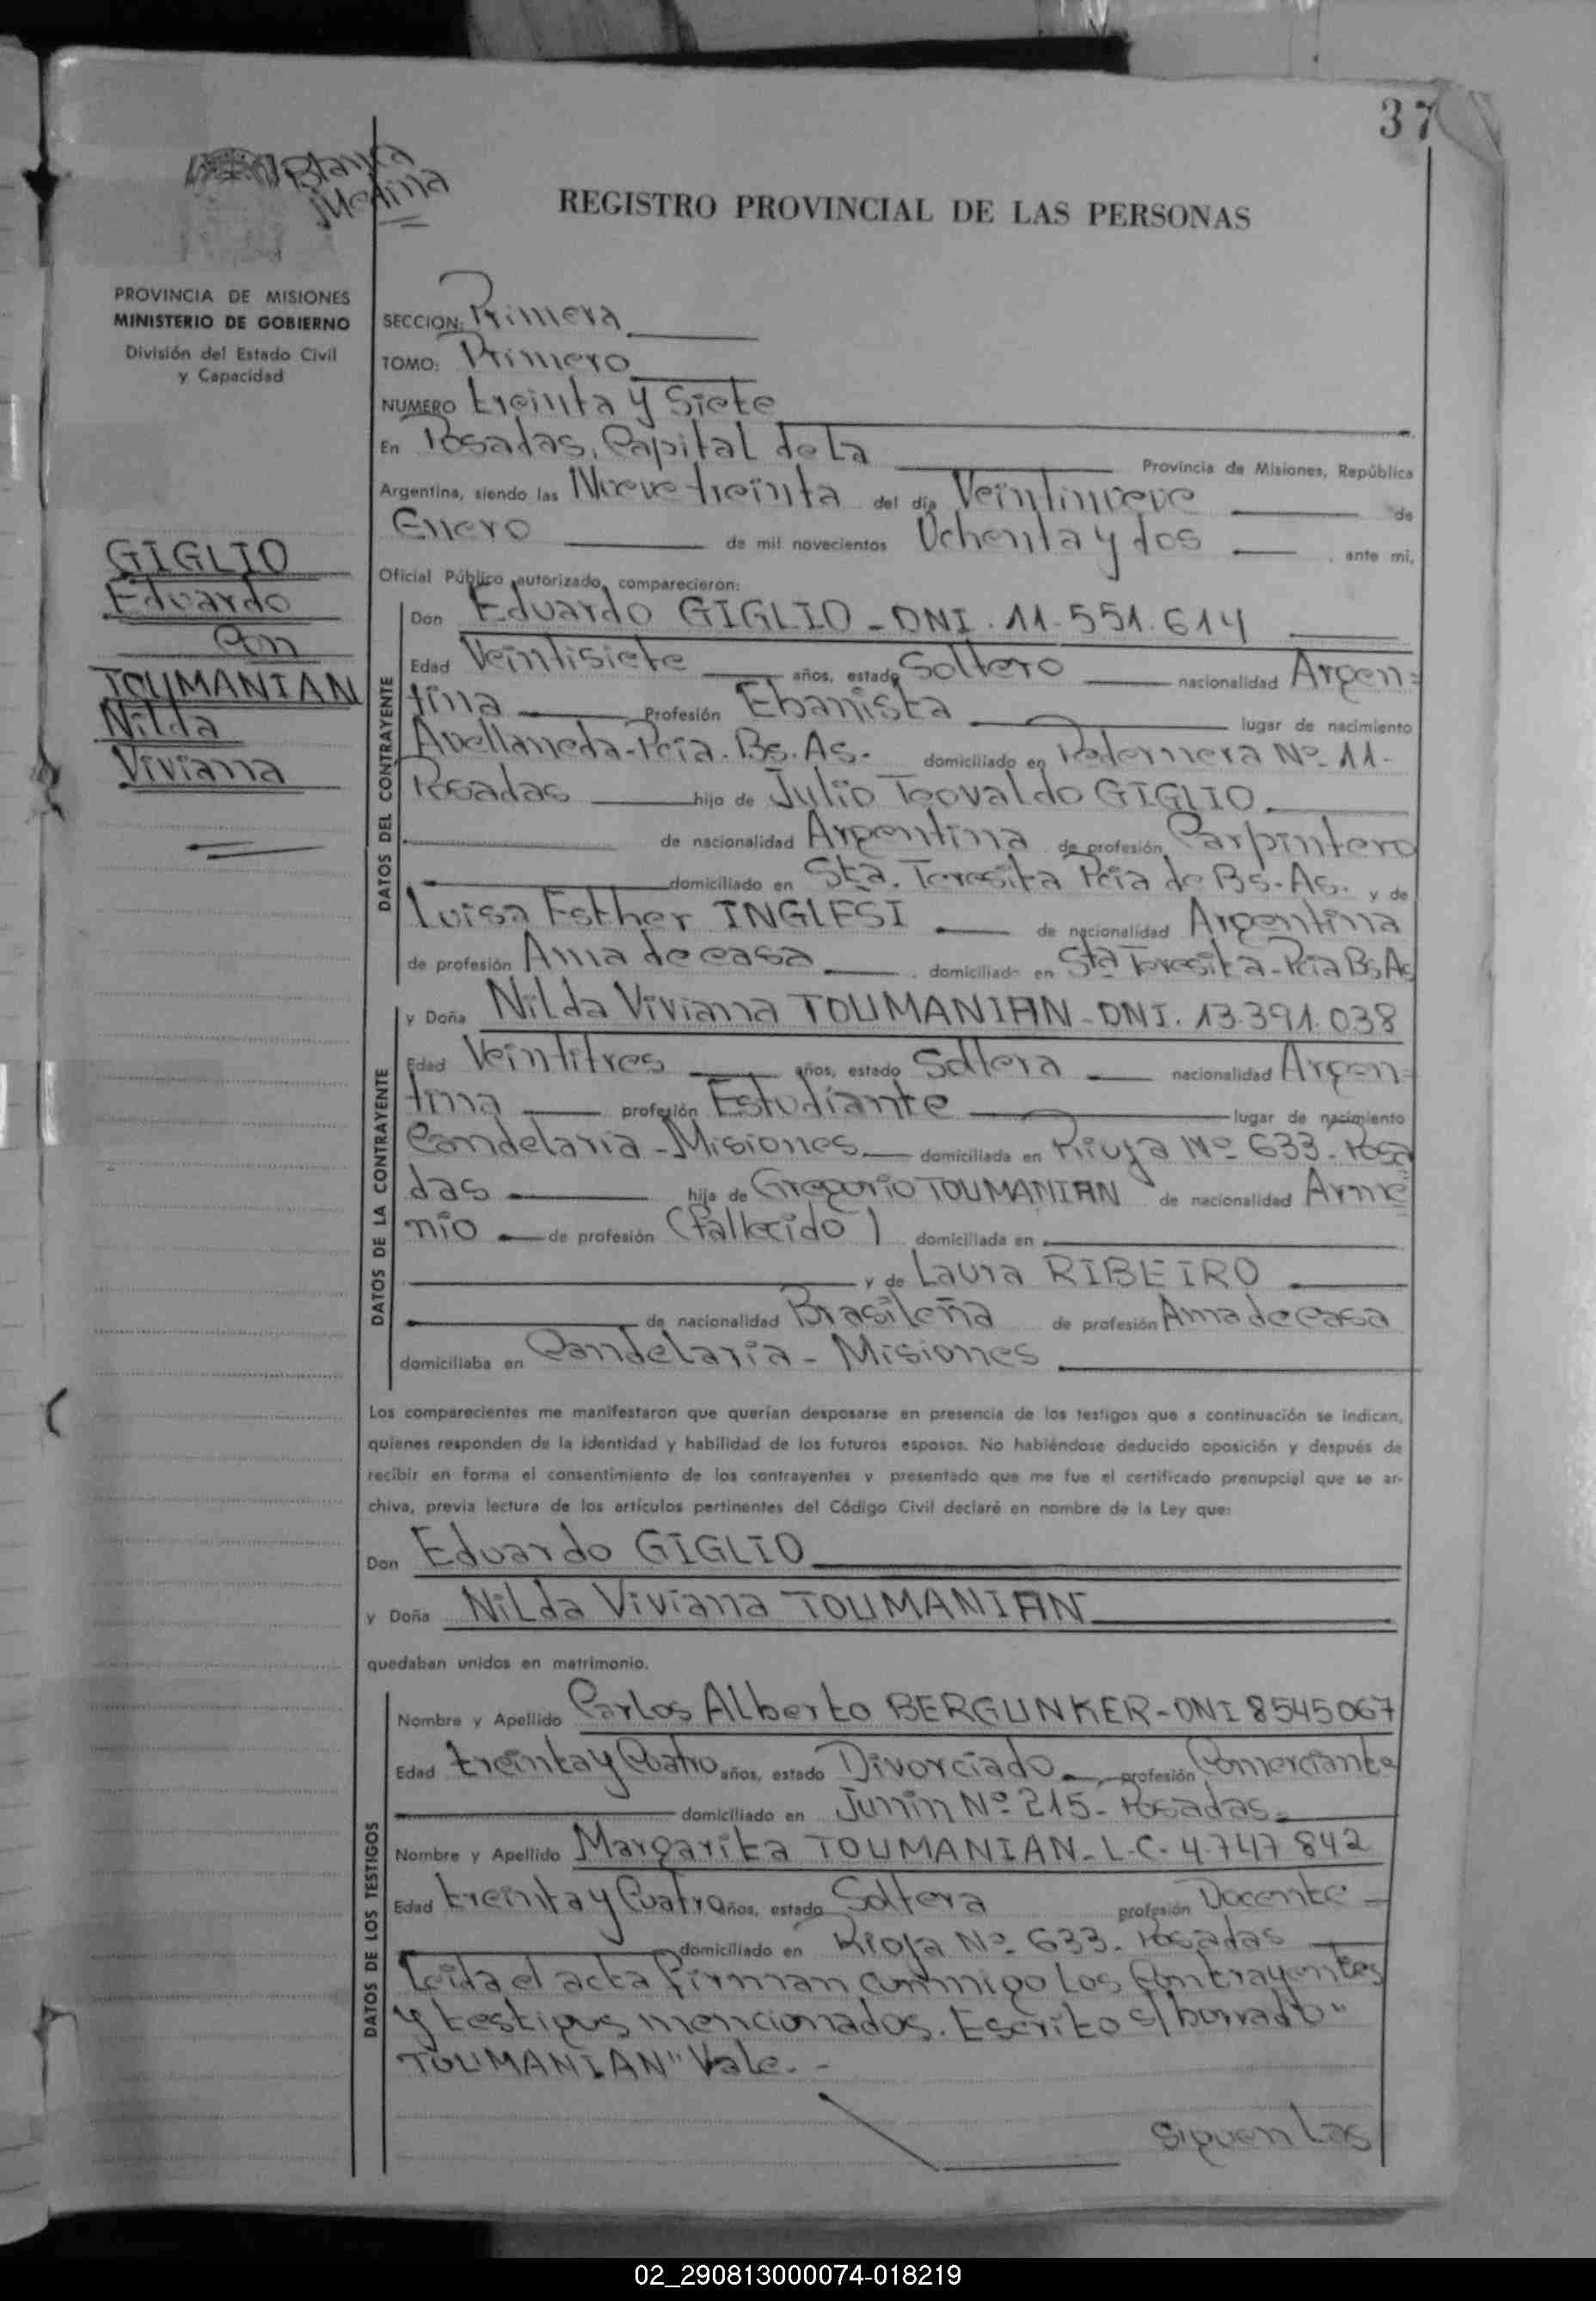 37
Blanca
Medina
REGISTRO PROVINCIAL DE LAS PERSONAS
PROVINCIA DE MISIONES
MINISTERIO DE GOBIERNO
División del Estado Civil
y Capacidad
GIGLIO
Eduardo
Con
TOUMANIAN
Nilda
Viviana
SECCION: Primera
TOMO: Primero
NUMERO treinta y Siete
En Posadas, Capital de La Provincia de Misiones, República
Argentina, siendo las Nueve treinta del día Veintinueve de
Enero de mil novecientos Ochenta y dos, ante mi,
Oficial Público autorizado, comparecieron:
DATOS DEL CONTRAYENTE
Don Eduardo GIGLIO - DNI. 11.551.614
Edad Veintisiete años, estado Soltero nacionalidad Argen=
tina Profesión Ebanista lugar de nacimiento
Avellaneda-Pcia. Bs. As. domiciliado en Padernera Nº 11-
Posadas hijo de Julio Teovaldo GIGLIO
de nacionalidad Argentina de profesión Carpintero
domiciliado en Sta. Teresita Pcia de Bs. As. y de
Luisa Esther INGLESI de nacionalidad Argentina
de profesión Ama de casa, domiciliado en Sta Teresita-Pcia Bs As
DATOS DE LA CONTRAYENTE
y Doña Nilda Viviana TOUMANIAN - DNI. 13.391.038
Edad Veintitres años, estado Soltera nacionalidad Argen=
tina profesión Estudiante lugar de nacimiento
Candelaria - Misiones domiciliada en Rioja Nº 633. Posa
das hija de Gregorio TOUMANIAN de nacionalidad Arme
nio de profesión (fallecido) domiciliada en
y de Laura RIBEIRO
de nacionalidad Brasileña de profesión Ama de Casa
domiciliaba en Candelaria - Misiones
Los comparecientes me manifestaron que querían desposarse en presencia de los testigos que a continuación se indican,
quienes responden de la identidad y habilidad de los futuros esposos. No habiéndose deducido oposición y después de
recibir en forma el consentimiento de los contrayentes y presentado que me fue el certificado prenupcial que se ar-
chiva, previa lectura de los artículos pertinentes del Código Civil declaré en nombre de la Ley que:
Don Eduardo GIGLIO
y Doña Nilda Viviana TOUMANIAN
quedaban unidos en matrimonio.
DATOS DE LOS TESTIGOS
Nombre y Apellido Carlos Alberto BERGUNKER-DNI 8545067
Edad treinta y Cuatro años, estado Divorciado, profesión Comerciante
domiciliado en Junin Nº 215- Posadas.
Nombre y Apellido Margarita TOUMANIAN-L.C. 4.747.842
Edad treinta y Cuatro años, estado Soltera profesión Docente
domiciliado en Rioja Nº 633. Posadas
Leida el acta firman conmigo Los Contrayentes
y testigos mencionados. Escrito s/borrado "
TOUMANIAN" Vale.-
Siguen Las
02_290813000074-018219